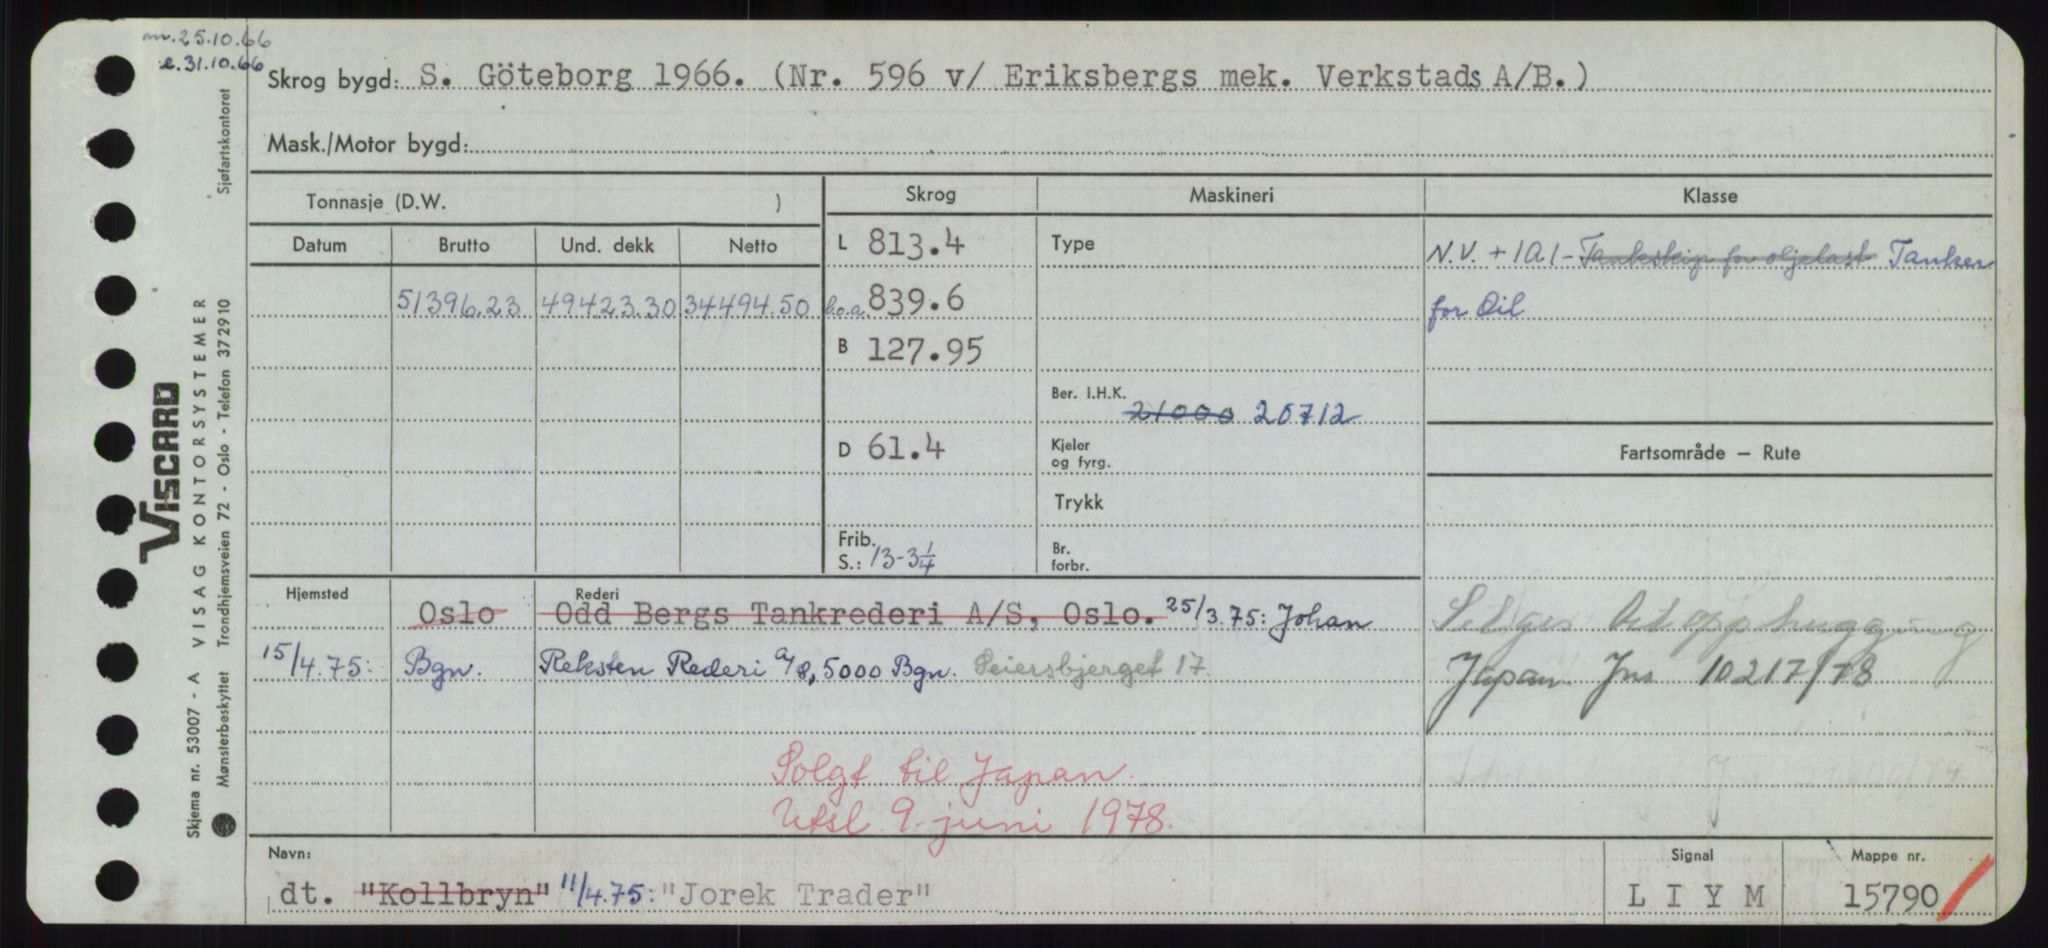 m. 25.10.66
e. 31.10.66
Skrog bygd: S. Göteborg 1966. (Nr. 596 v/ Eriksbergs mek. Verkstads A/B.)
Mask./Motor bygd:
Tonnasje (D.W. )
Skrog Maskineri Klasse
Datum Brutto Und. dekk Netto
L 813.4
Type
N.V. + 1A1 - Tankskip for oljelast Tanker
for Oil
51396.23 49423.30 34494.50
l.o.a. 839.6
B 127.95
Ber. I.H.K. 21000 20712
D 61.4
Kjeler og fyrg.
Fartsområde – Rute
Trykk
Frib.
S.: 13-3 1/4
Br. forbr.
Hjemsted Rederi
Oslo Odd Bergs Tankrederi A/S, Oslo. 25/3.75: Johan
15/4.75: Bgn. Reksten Rederi A/S, 5000 Bgn. Leiersbjerget 17.
Selges til opphugging
Japan Jnr 10217/78
Solgt til Japan.
Utsl. 9. juni 1978.
Navn:
dt. "Kollbryn" 11/4.75: "Jorek Trader"
Signal
L I Y M
Mappe nr.
15790
Skjema nr. 53007 - A VISAG KONTORSYSTEMER
Mønsterbeskyttet Trondhjemsveien 72 - Oslo - Telefon 372910 Sjøfartskontoret
VISCARD